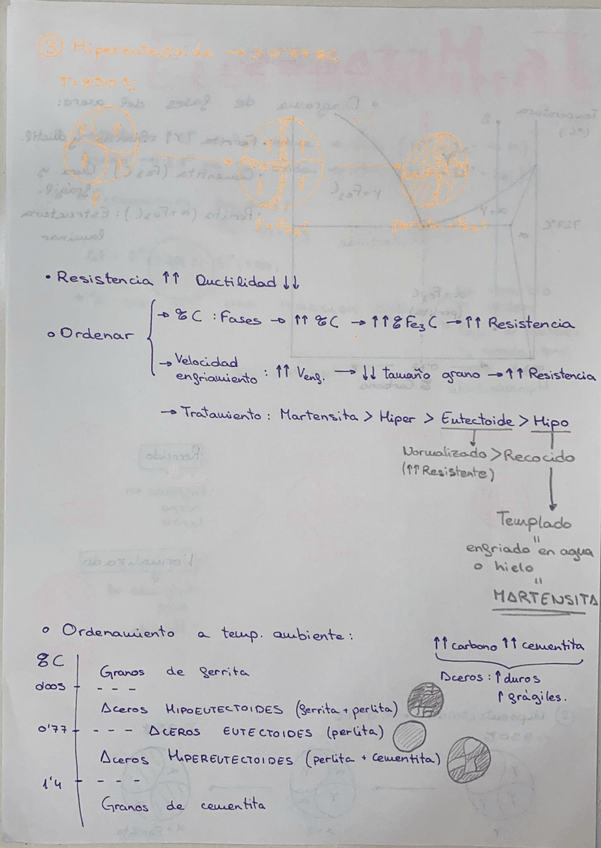 ③ Hipereutectoide →
T: 950 ℃
γ γ γ
γ
γ+Fe₃C
perlita + Fe₃C
• Resistencia ↑↑ Ductilidad ↓↓
o Ordenar
→ %C : Fases → ↑↑ %C → ↑↑ %Fe₃C → ↑↑ Resistencia
→ Velocidad
enfriamiento : ↑↑ Venf. → ↓↓ tamaño grano → ↑↑ Resistencia
→ Tratamiento : Martensita > Hiper > Eutectoide > Hipo
Normalizado > Recocido
(↑↑ Resistente)
Templado
=
enfriado en agua
o hielo
=
MARTENSITA
o Ordenamiento a temp. ambiente:
↑↑ carbono ↑↑ cementita
Aceros : ↑ duros
↑ frágiles.
%C
Granos de ferrita
0'005 - - -
Aceros HIPOEUTECTOIDES (ferrita + perlita)
0'77 - - - ACEROS EUTECTOIDES (perlita)
Aceros HIPEREUTECTOIDES (perlita + cementita)
1'4 - - -
Granos de cementita